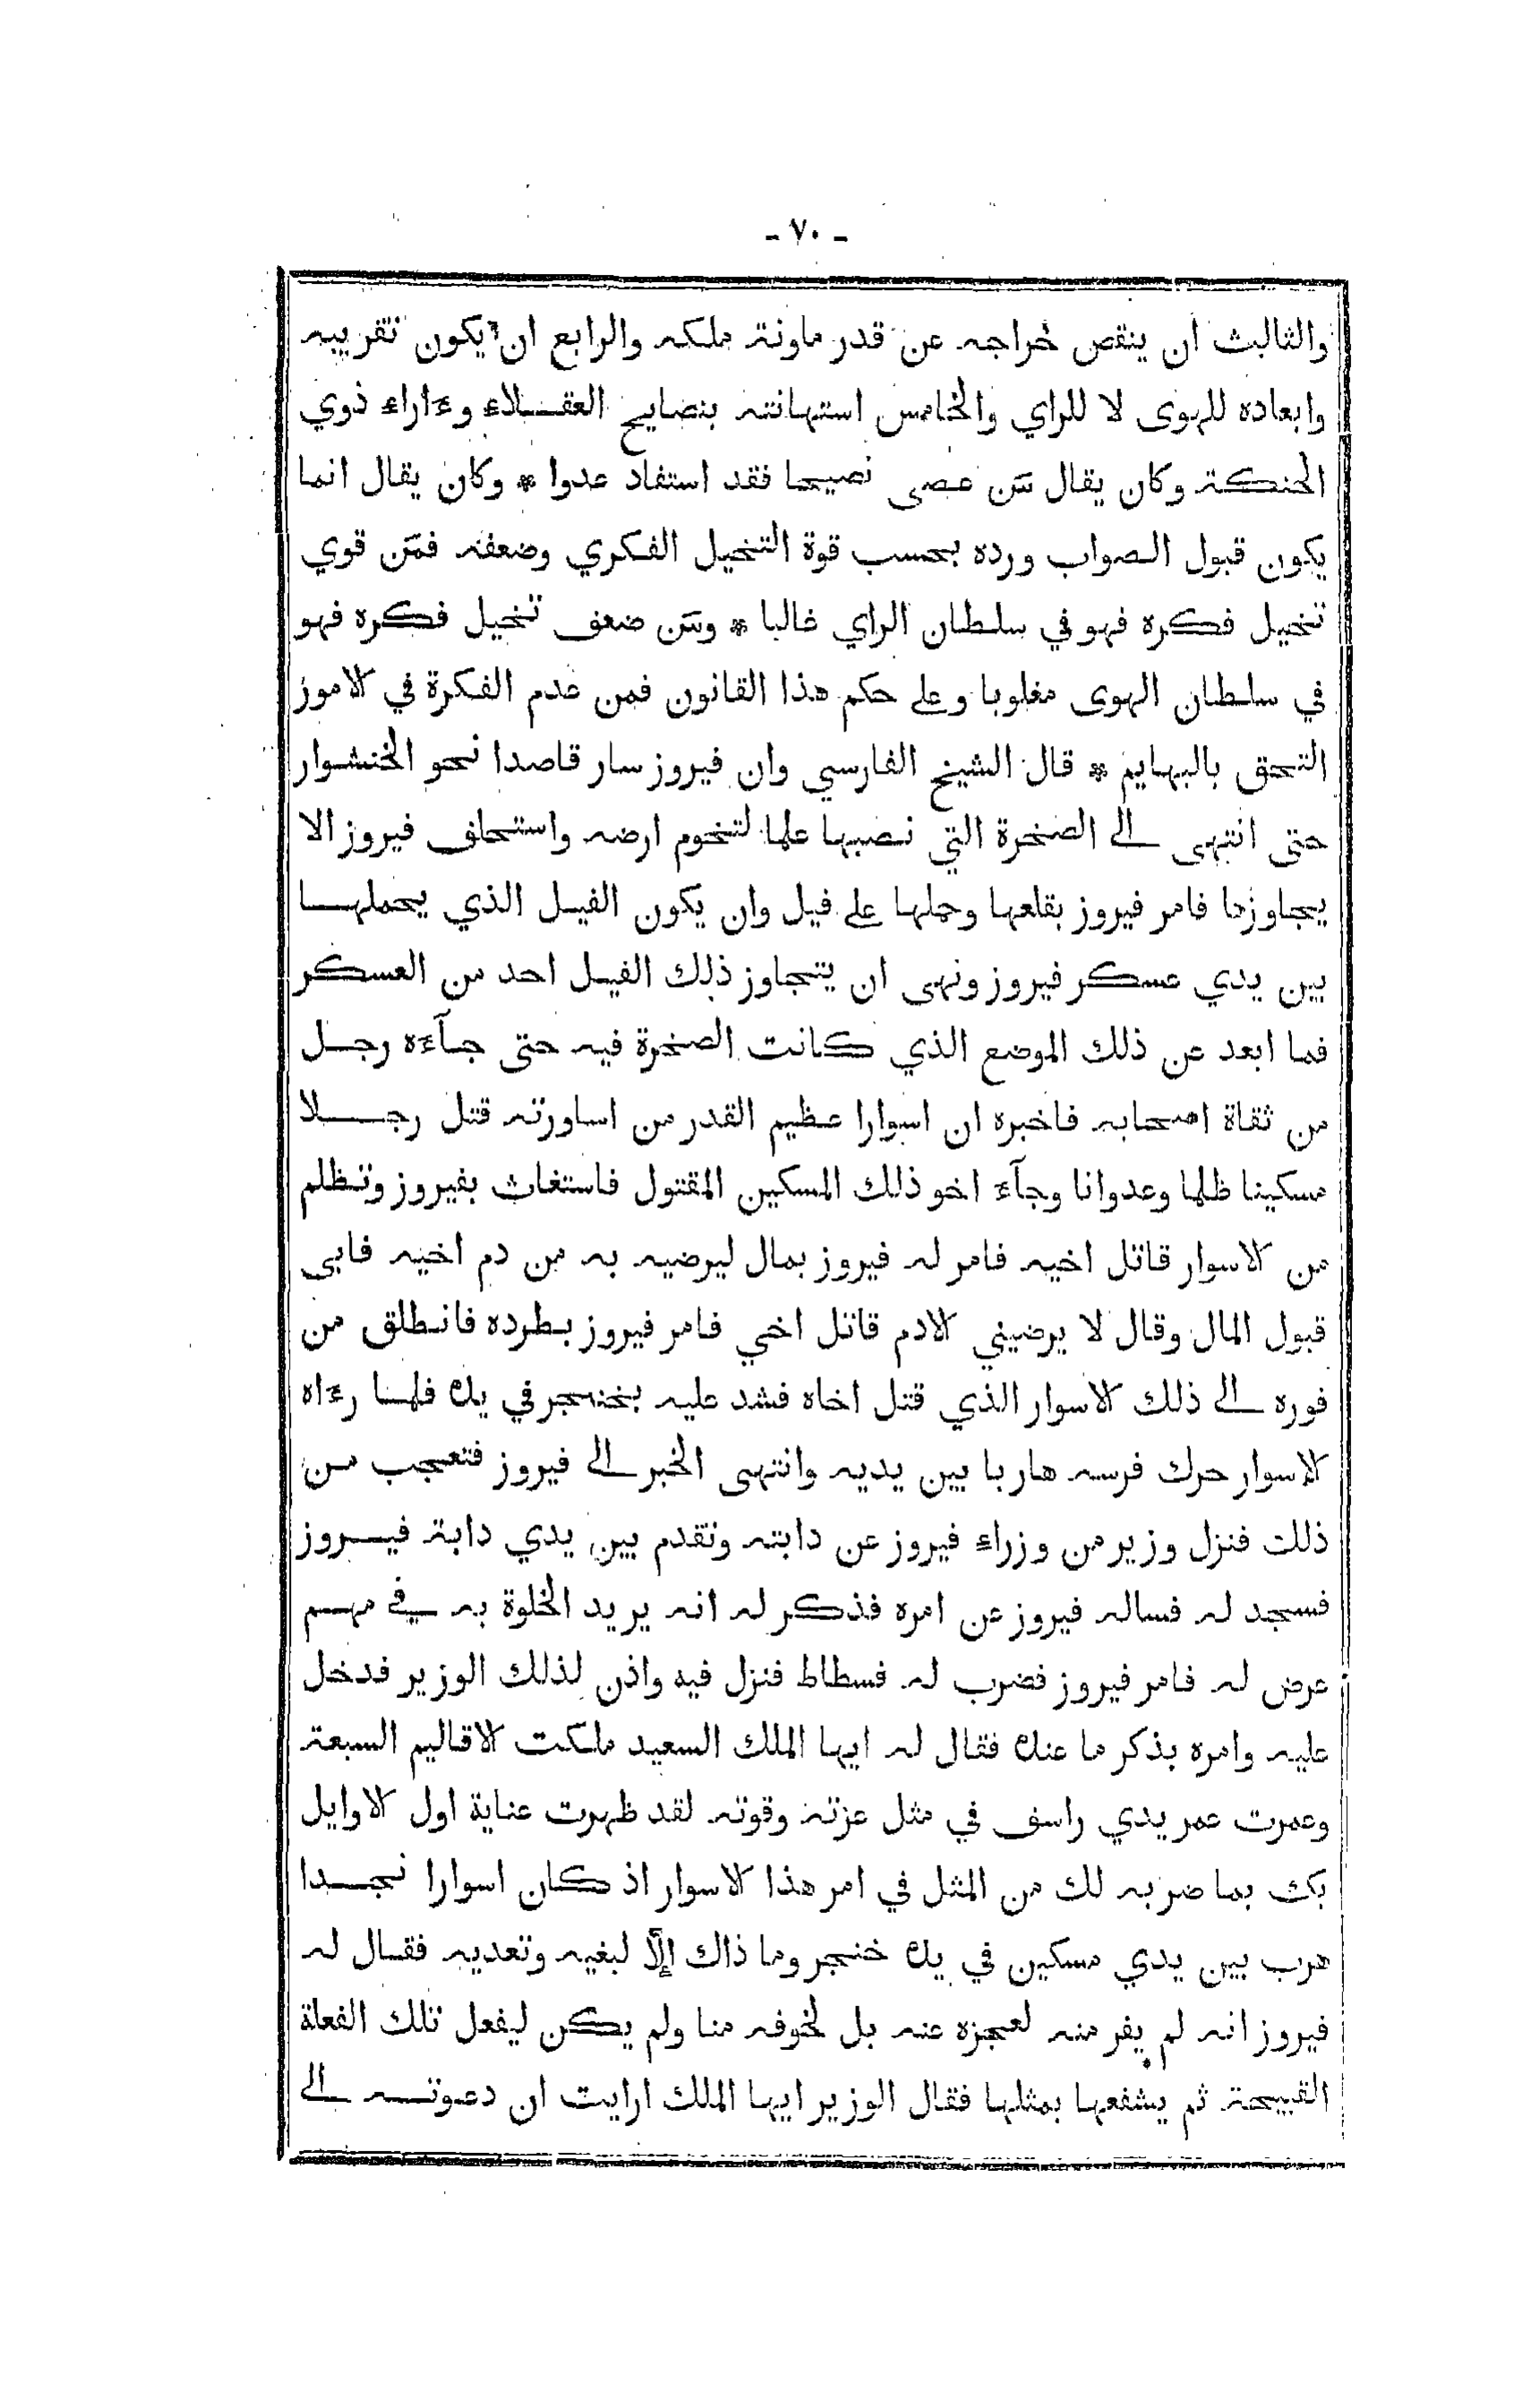 - ٧٠ -
والثالث ان ينقص خراجه عن قدر ماونة ملكه والرابع ان يكون تقريبه
وابعاده للهوى لا للراي والخامس استهانته بنصايح العقلاء وءاراء ذوي
الحنكة وكان يقال مَن عصى نصيحا فقد استفاد عدوا * وكان يقال انما
يكون قبول الصواب ورده بحسب قوة التخيل الفكري وضعفه فمَن قوي
تخيل فكره فهو في سلطان الراي غالبا * ومَن ضعف تخيل فكره فهو
في سلطان الهوى مغلوبا وعلى حكم هذا القانون فمن عدم الفكرة في الامور
التحق بالبهايم * قال الشيخ الفارسي وان فيروز سار قاصدا نحو الخنشوار
حتى انتهى الى الصخرة التي نصبها علما لتخوم ارضه واستحلف فيروز الا
يجاوزها فامر فيروز بقلعها وحملها على فيل وان يكون الفيل الذي يحملها
بين يدي عسكر فيروز ونهى ان يتجاوز ذلك الفيل احد من العسكر
فما ابعد عن ذلك الموضع الذي كانت الصخرة فيه حتى جآءه رجل
من ثقاة اصحابه فاخبره ان اسوارا عظيم القدر من اساورته قتل رجلا
مسكينا ظلما وعدوانا وجآء اخو ذلك المسكين المقتول فاستغاث بفيروز وتظلم
من الاسوار قاتل اخيه فامر له فيروز بمال ليرضيه به من دم اخيه فابى
قبول المال وقال لا يرضيني الادم قاتل اخي فامر فيروز بطرده فانطلق من
فوره الى ذلك الاسوار الذي قتل اخاه فشد عليه بخنجر في يده فلما رءاه
الاسوار حرك فرسه هاربا بين يديه وانتهى الخبر الى فيروز فتعجب من
ذلك فنزل وزير من وزراء فيروز عن دابته وتقدم بين يدي دابة فيروز
فسجد له فساله فيروز عن امره فذكر له انه يريد الخلوة به في مهم
عرض له فامر فيروز فضرب له فسطاط فنزل فيه واذن لذلك الوزير فدخل
عليه وامره بذكر ما عنده فقال له ايها الملك السعيد ملكت الاقاليم السبعة
وعمرت عمر يدي راسف في مثل عزته وقوته لقد ظهرت عناية اول الاوايل
بك بما ضربه لك من المثل في امر هذا الاسوار اذ كان اسوارا نجدا
هرب بين يدي مسكين في يده خنجر وما ذاك إلّا لبغيه وتعديه فقال له
فيروز انه لم يفر منه لعجزه عنه بل لخوفه منا ولم يكن ليفعل تلك الفعلة
القبيحة ثم يشفعها بمثلها فقال الوزير ايها الملك ارايت ان دعوته الى